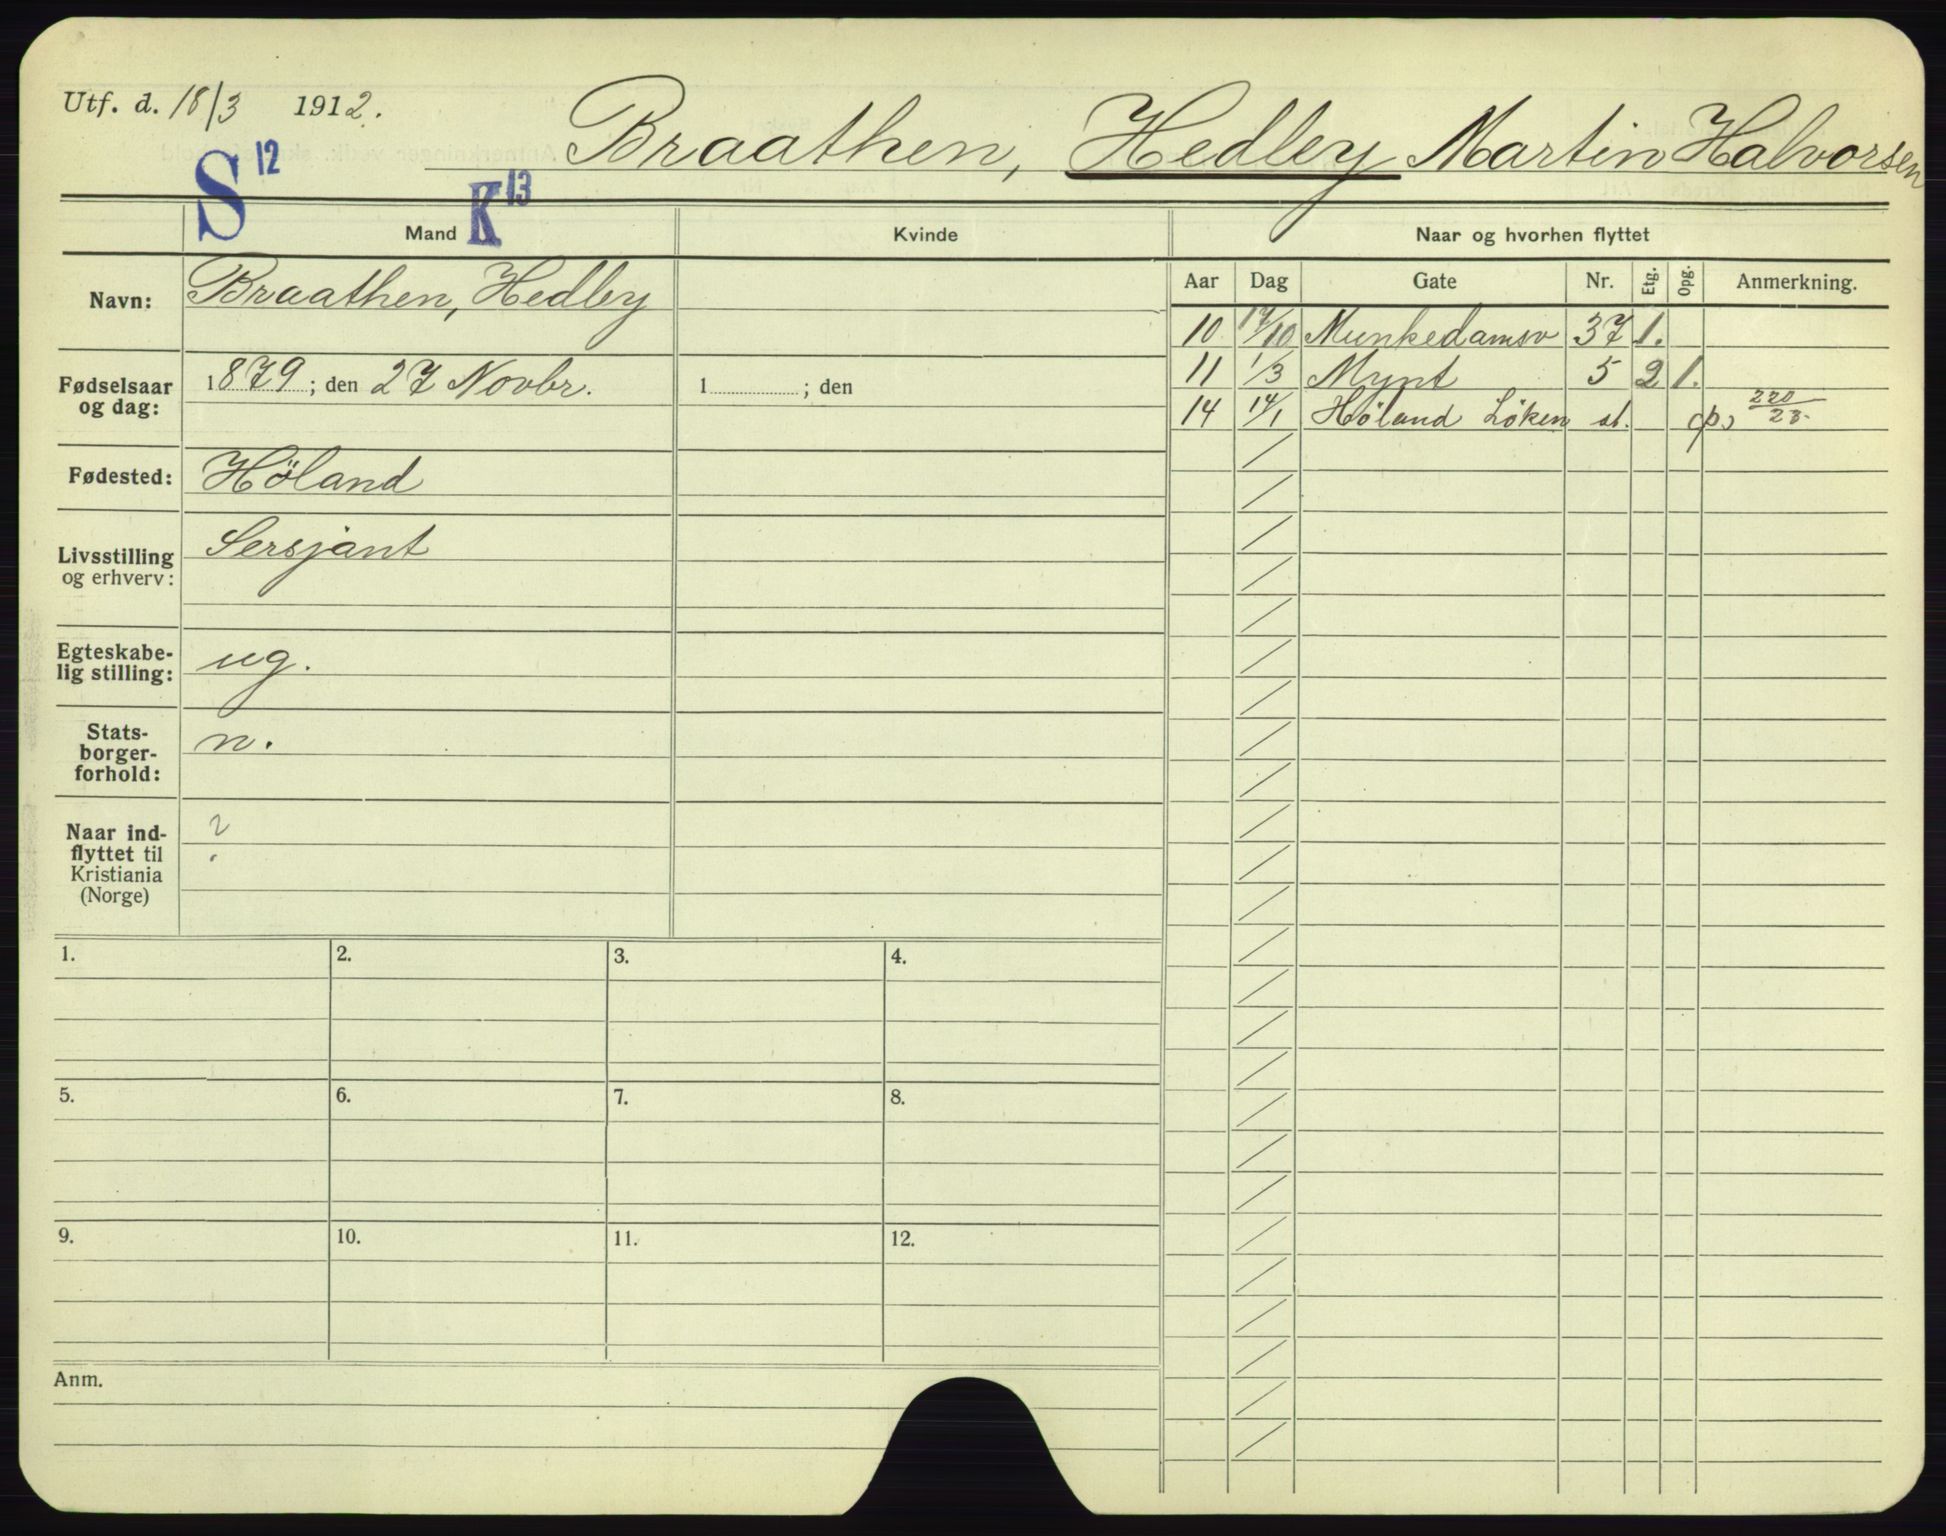 Utf. d. 18/3 1912.
Braathen, Hedley Martin Halvorsen
S 12
K 13
Mand
Kvinde
Naar og hvorhen flyttet
Navn: Braathen, Hedley
Fødselsaar og dag: 1879; den 27 Novbr.
1 ; den
Fødested: Höland
Livsstilling og erhverv: Sersjant
Egteskabe-
lig stilling: ug.
Stats-
borger-
forhold: n.
Naar ind-
flyttet til
Kristiania
(Norge) ?
Aar Dag Gate Nr. Etg. Opg. Anmerkning.
10 17/10 Munkedamsv 37 1.
11 1/3 Mynt 5 2 1.
14 14/1 Høland Løken st. 220/23.
1. 2. 3. 4.
5. 6. 7. 8.
9. 10. 11. 12.
Anm.